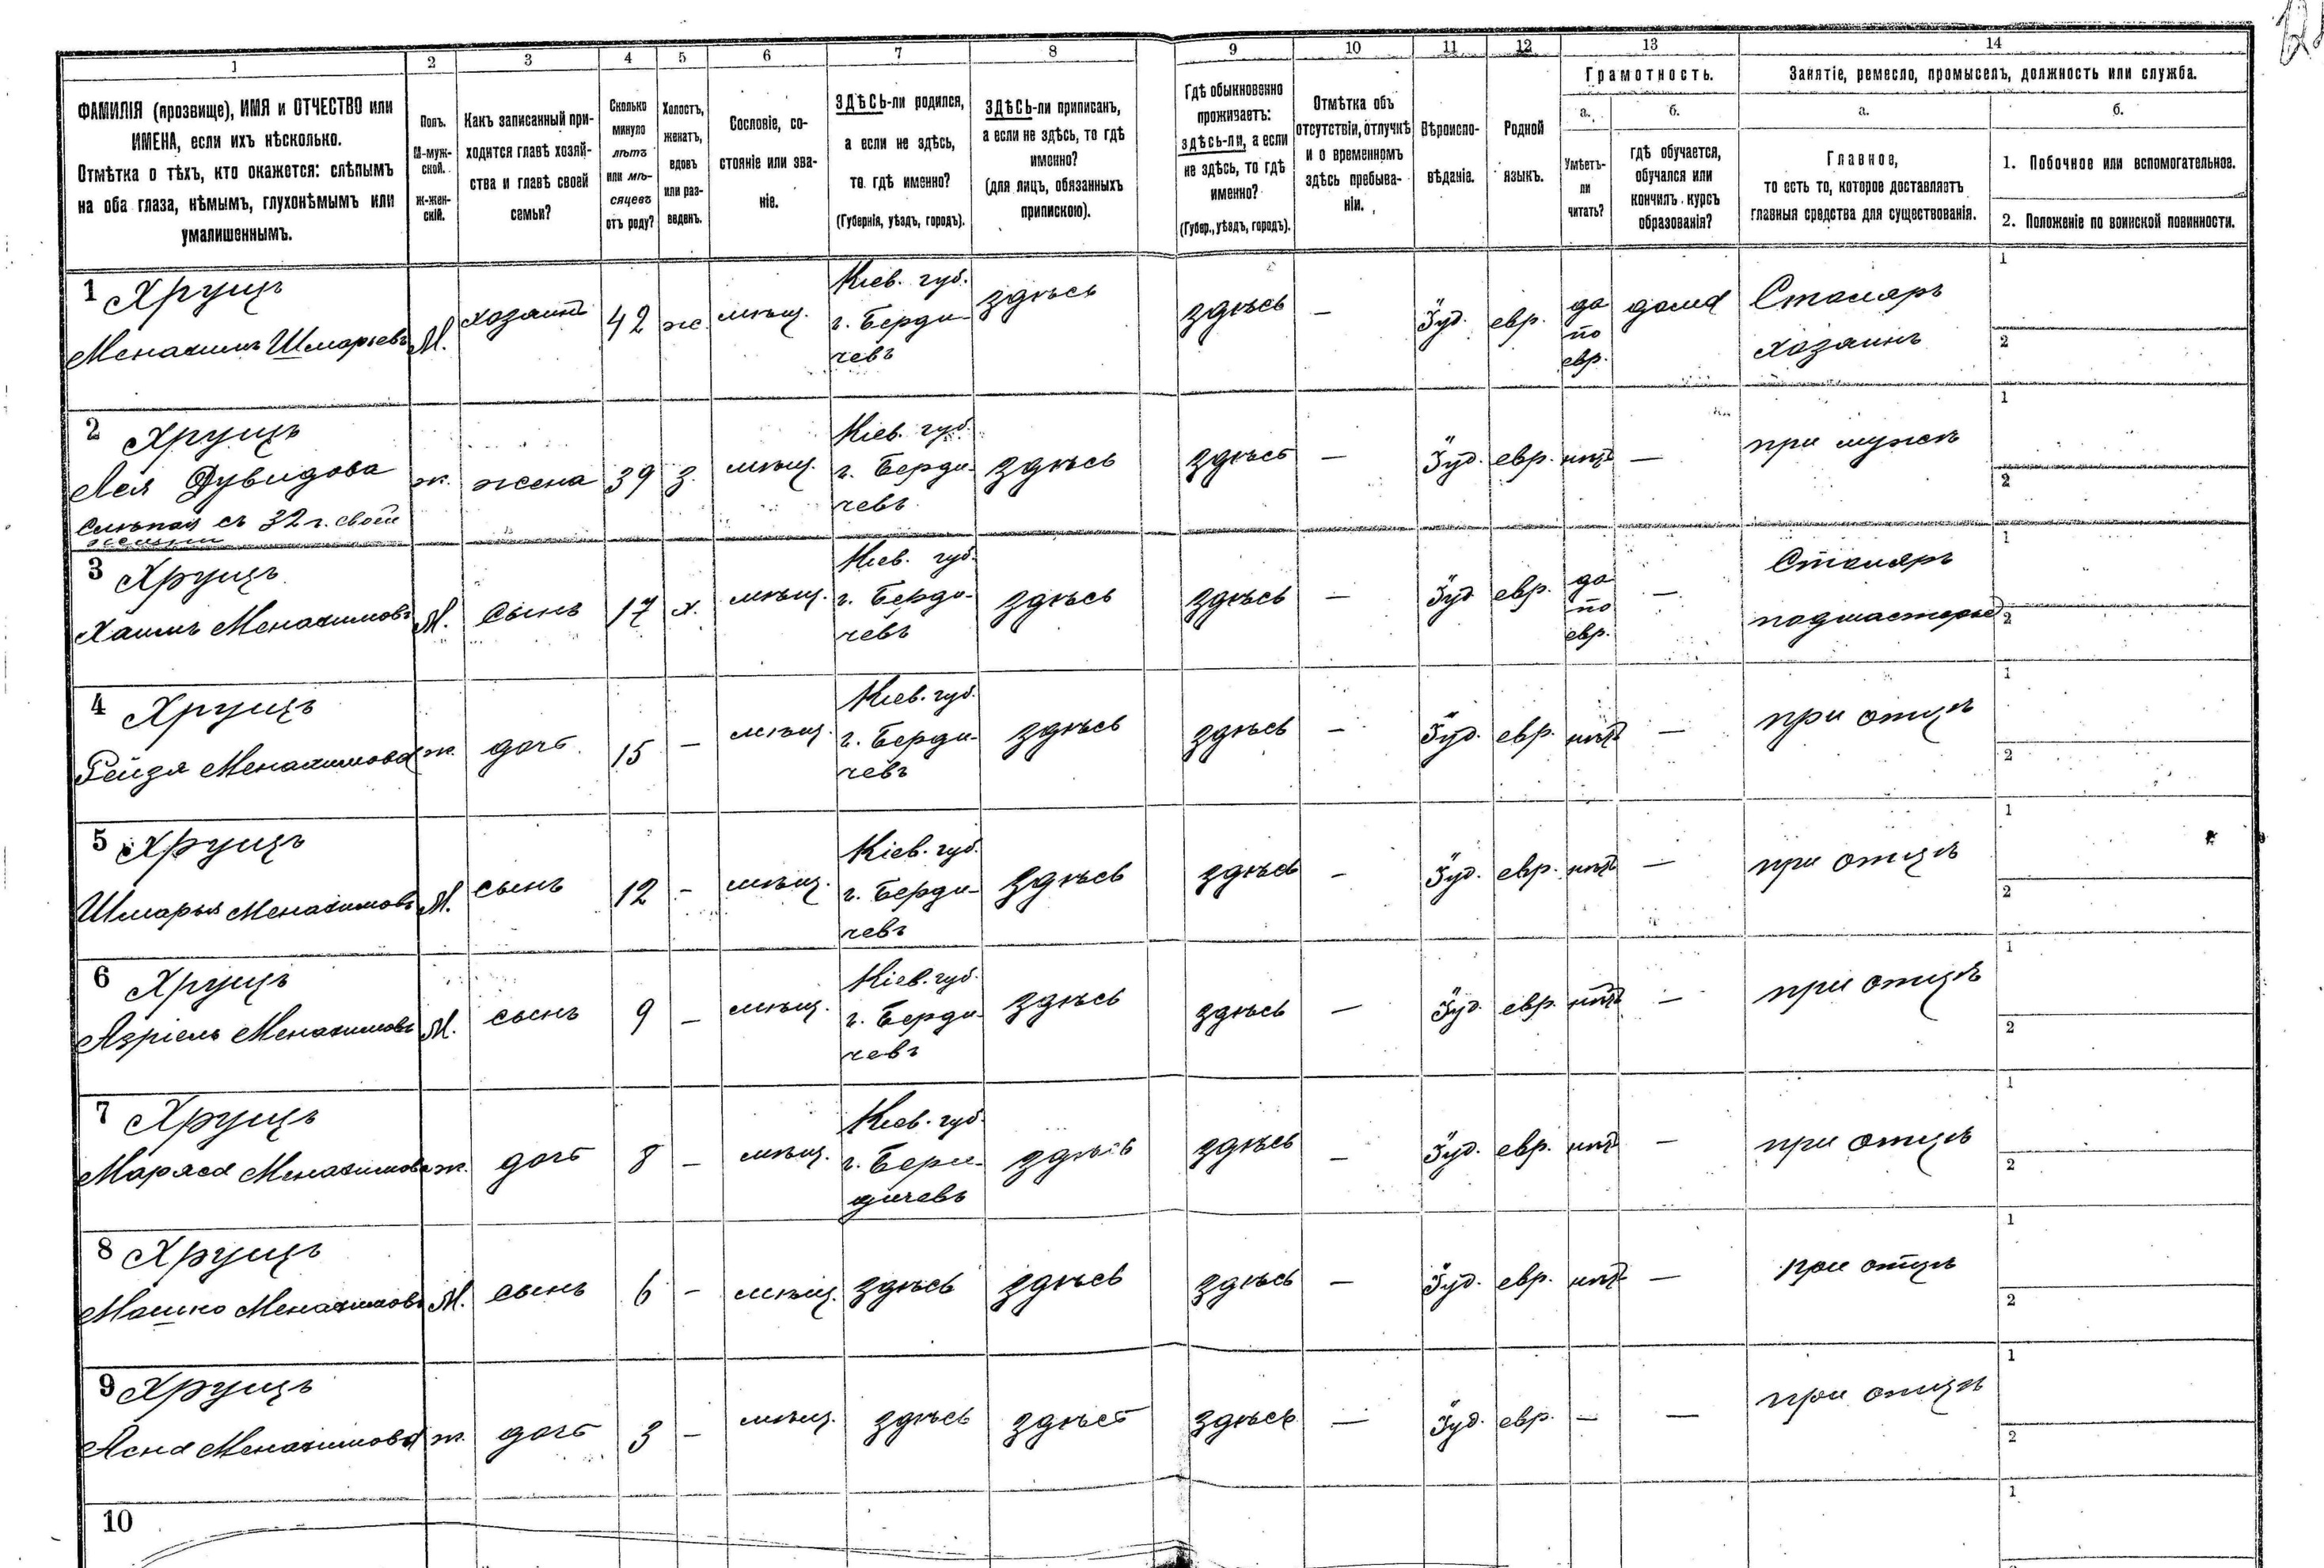 1 2 3 4 5 6 7 8 9 10 11 12 13 14
ФАМИЛІЯ (прозвище), ИМЯ и ОТЧЕСТВО или
ИМЕНА, если ихъ нѣсколько.
Отмѣтка о тѣхъ, кто окажется: слѣпымъ
на оба глаза, нѣмымъ, глухонѣмымъ или
умалишеннымъ.
Полъ.
М-муж-
ской.
Ж-жен-
скій.
Какъ записанный при-
ходится главѣ хозяй-
ства и главѣ своей
семьи?
Сколько
минуло
лѣтъ
или мѣ-
сяцевъ
отъ роду?
Холостъ,
женатъ,
вдовъ
или раз-
веденъ.
Сословіе, со-
стояніе или зва-
ніе.
ЗДѢСЬ-ли родился,
а если не здѣсь,
то гдѣ именно?
(Губернія, уѣздъ, городъ).
ЗДѢСЬ-ли приписанъ,
а если не здѣсь, то гдѣ
именно?
(для лицъ, обязанныхъ
припискою).
Гдѣ обыкновенно
проживаетъ:
здѣсь-ли, а если
не здѣсь, то гдѣ
именно?
(Губер., уѣздъ, городъ).
Отмѣтка объ
отсутствіи, отлучкѣ
и о временномъ
здѣсь пребыва-
ніи.
Вѣроиспо-
вѣданіе.
Родной
языкъ.
Грамотность.
а.
Умѣетъ-
ли
читать?
б.
гдѣ обучается,
обучался или
кончилъ курсъ
образованія?
Занятіе, ремесло, промыселъ, должность или служба.
а.
Главное,
то есть то, которое доставляетъ
главныя средства для существованія.
б.
1. Побочное или вспомогательное.
2. Положеніе по воинской повинности.
1 Хрущъ
Менахимъ Шмарьевъ
М.
хозаинъ
42
ж.
мѣщ.
Кіев. губ.
г. Берди-
чевъ
здѣсь
здѣсь
—
Іуд.
евр.
да
по
евр.
дома
Столяръ
хозаинъ
1
2
2 Хрущъ
Лея Дувидова
Слѣпая съ 32 г. своей
жизни
ж.
жена
39
з.
мѣщ.
Кіев. губ.
г. Берди-
чевъ
здѣсь
здѣсь
—
Іуд.
евр.
нѣтъ
—
при мужѣ
1
2
3 Хрущъ
Хаимъ Менахимовъ
М.
сынъ
17
х.
мѣщ.
Кіев. губ.
г. Берди-
чевъ
здѣсь
здѣсь
—
Іуд.
евр.
да
по
евр.
—
Столяръ
подмастерье
1
2
4 Хрущъ
Рейзя Менахимова
ж.
дочь
15
—
мѣщ.
Кіев. губ.
г. Берди-
чевъ
здѣсь
здѣсь
—
Іуд.
евр.
нѣтъ
—
при отцѣ
1
2
5 Хрущъ
Шмарья Менахимовъ
М.
сынъ
12
—
мѣщ.
Кіев. губ.
г. Берди-
чевъ
здѣсь
здѣсь
—
Іуд.
евр.
нѣтъ
—
при отцѣ
1
2
6 Хрущъ
Азріель Менахимовъ
М.
сынъ
9
—
мѣщ.
Кіев. губ.
г. Берди-
чевъ
здѣсь
здѣсь
—
Іуд.
евр.
нѣтъ
—
при отцѣ
1
2
7 Хрущъ
Маряса Менахимова
ж.
дочь
8
—
мѣщ.
Кіев. губ.
г. Бери-
дичевъ
здѣсь
здѣсь
—
Іуд.
евр.
нѣтъ
—
при отцѣ
1
2
8 Хрущъ
Мошко Менахимовъ
М.
сынъ
6
—
мѣщ.
здѣсь
здѣсь
здѣсь
—
Іуд.
евр.
нѣтъ
—
при отцѣ
1
2
9 Хрущъ
Асна Менахимова
ж.
дочь
3
—
мѣщ.
здѣсь
здѣсь
здѣсь
—
Іуд.
евр.
—
—
при отцѣ
1
2
10
1